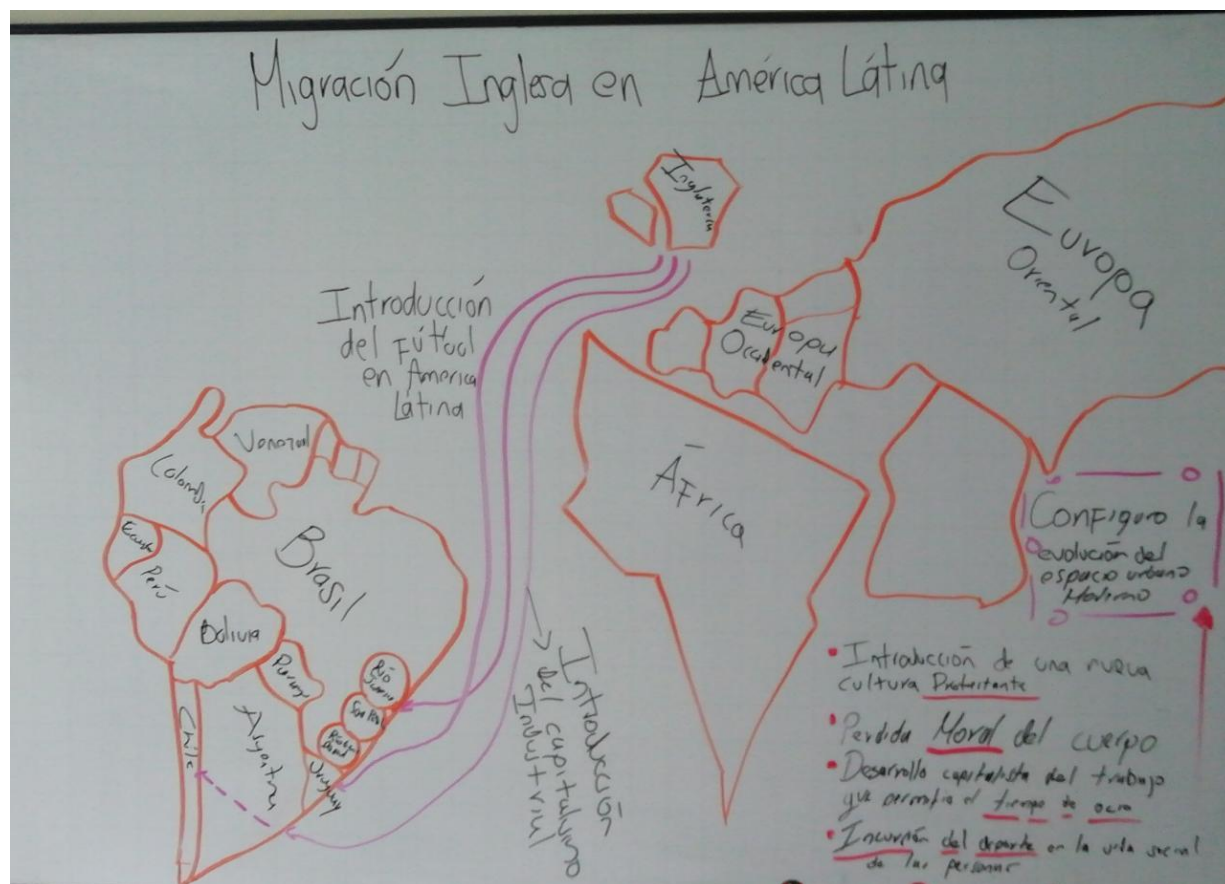 Migración Inglesa en América Látina
Inglaterra
Europa
Oriental
Introducción
del Fútbol
en América
Látina
Europa
Occidental
África
Venezuel
Colombia
Ecuador
Perú
Brasil
Bolivia
Chile
Argentina
Uruguay
Río
Sao Paulo
Introducción
del capitalismo
Industrial
Configuro la
evolución del
espacio urbano
Moderno
• Introducción de una nueva
cultura Protestante
• Perdida Moral del cuerpo
• Desarrollo capitalista del trabajo
que permitia el tiempo de ocio
• Incursión del deporte en la vida social
de las personas